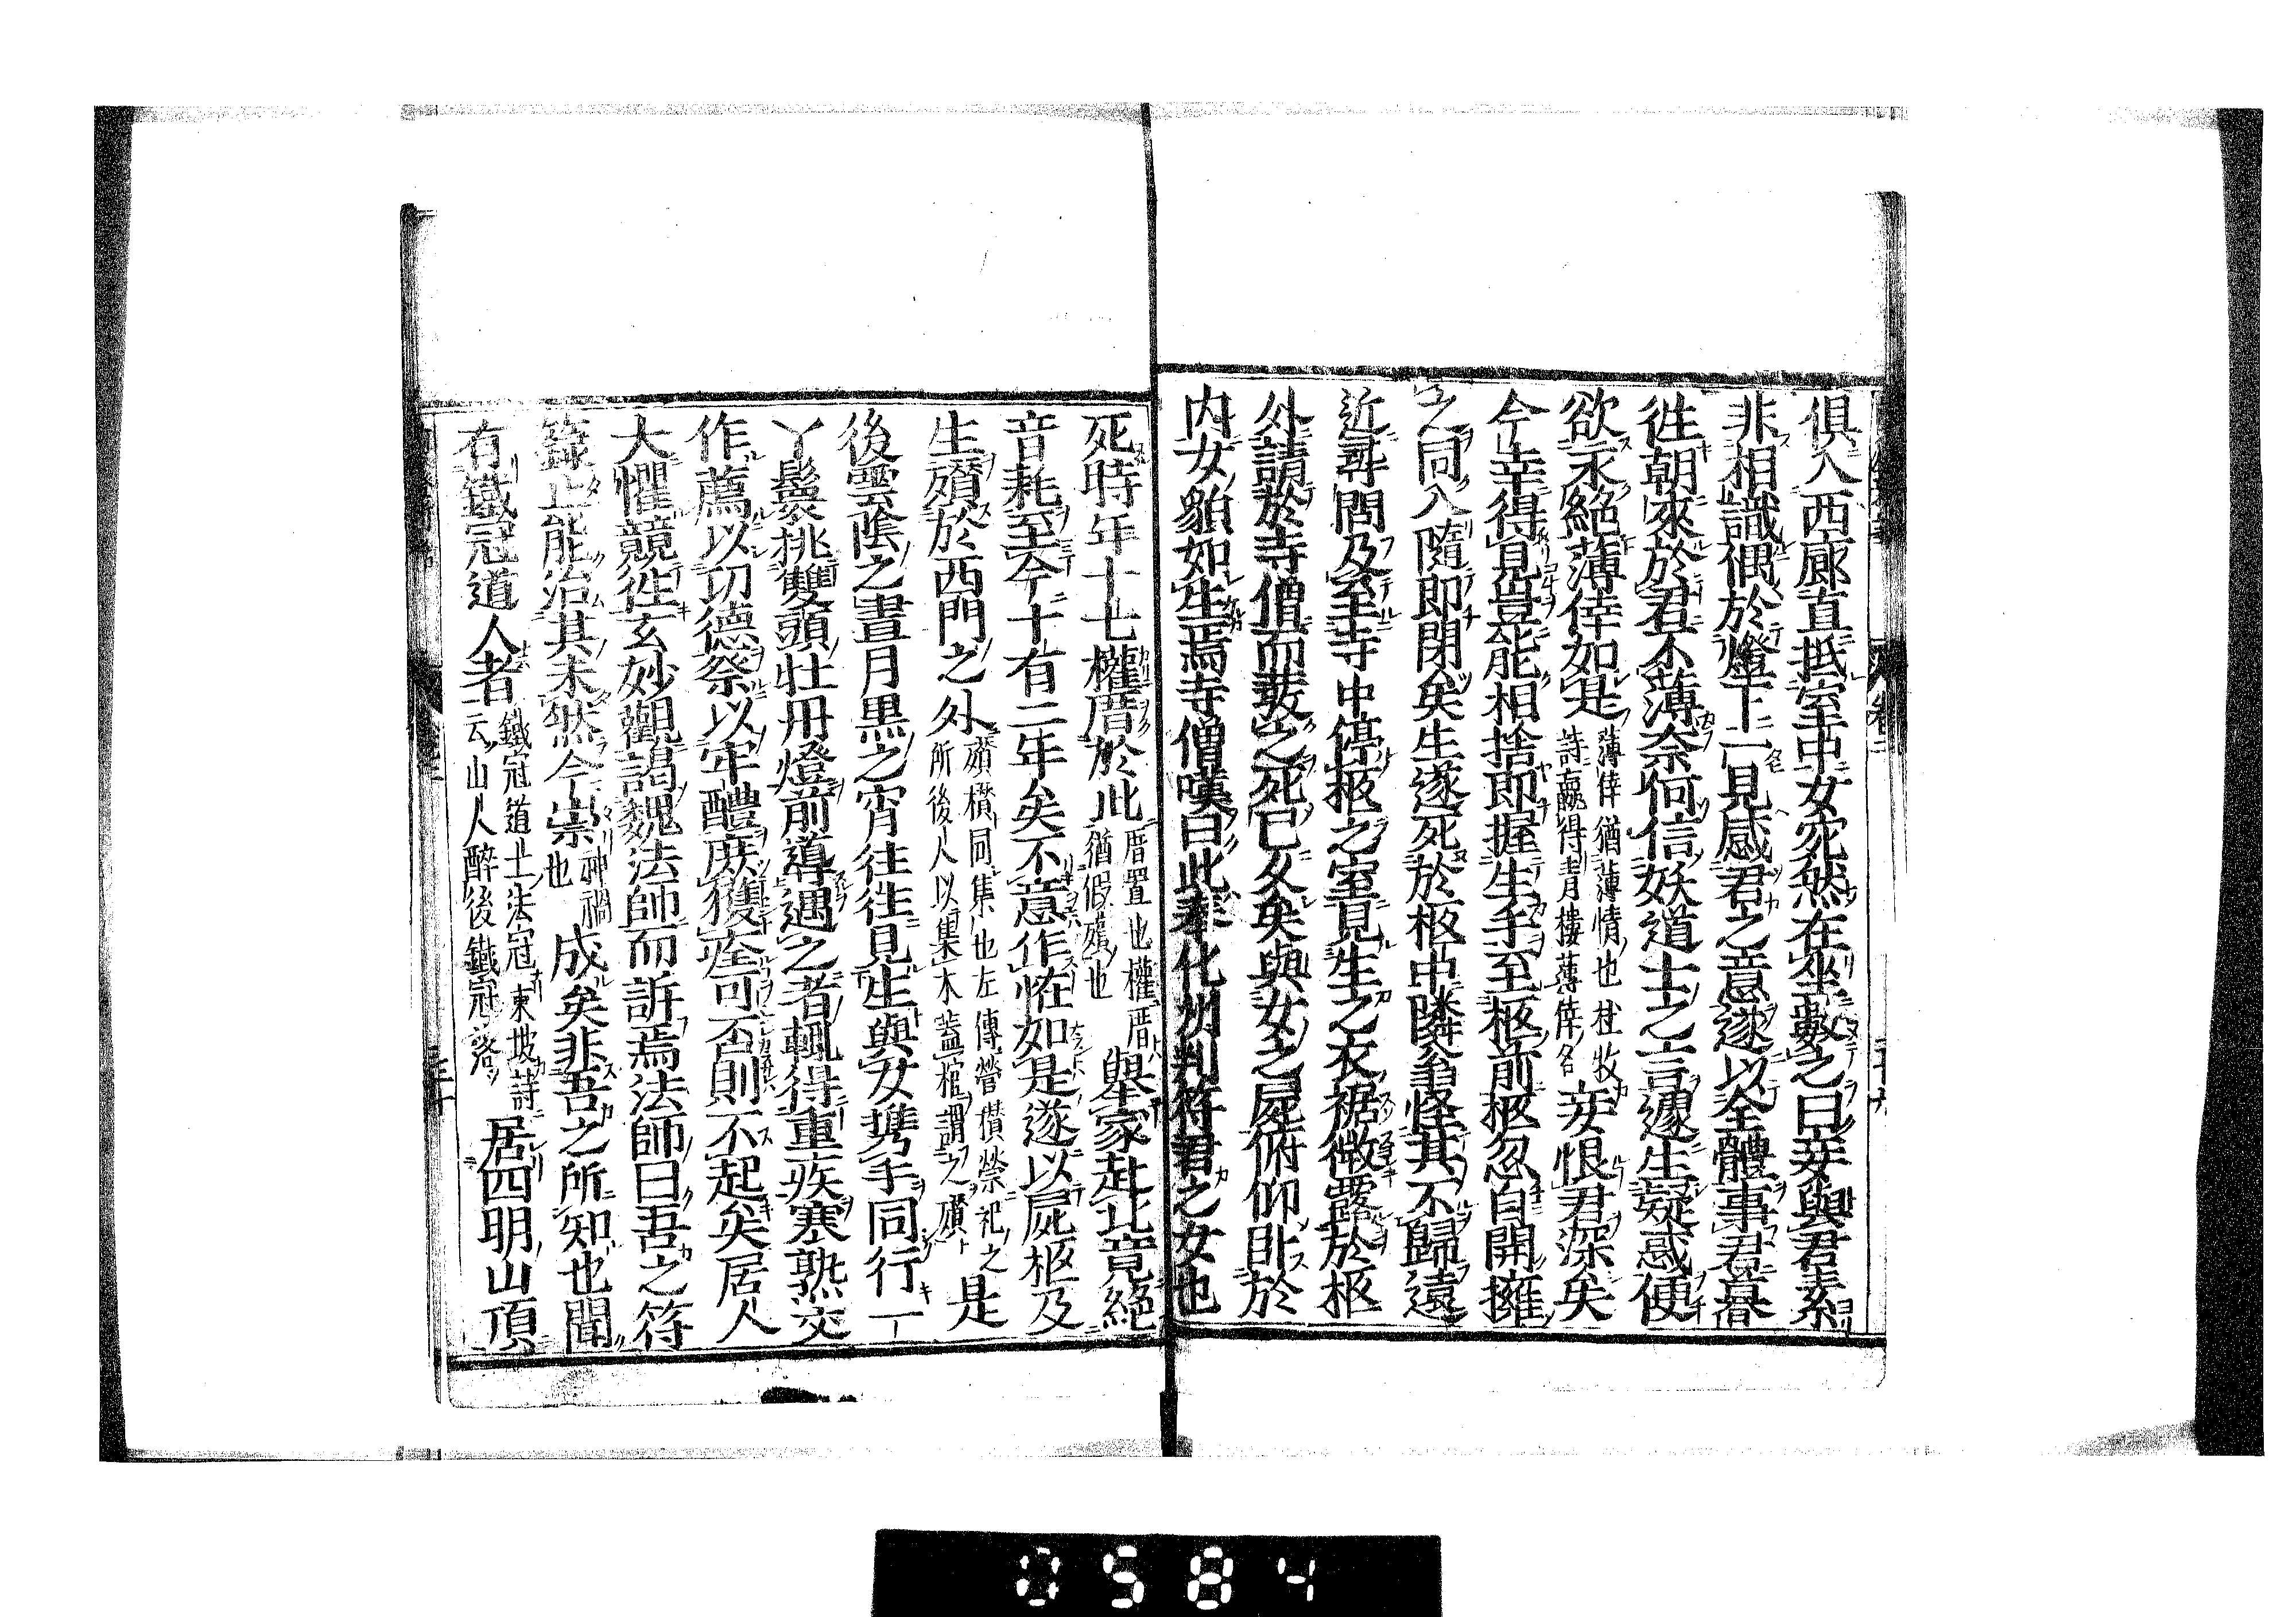 俱入西廊直抵室中女宛然在坐數之曰妾與君素
非相識偶於燈下一見感君之意遂以全體事君暮
徃朝來於君不薄奈何信妖道士之言遽生疑惑便
欲永絕薄倖如是薄倖猶薄情也杜牧詩贏得青樓薄倖名妾恨君深矣
今幸得見豈能相捨即握生手至柩前柩忽自開擁
之同入隨即閉矣生遂死於柩中隣翁怪其不歸遠
近尋問及至寺中停柩之室見生之衣裾微露於柩
外請於寺僧而發之死已久矣與女之屍俯仰臥於
内女貌如生焉寺僧嘆曰此奉化州判符君之女也
死時年十七權厝於此厝置也權厝猶假殯也舉家赴北竟絕
音耗至今十有二年矣不意作恠如是遂以屍柩及
生殯於西門之外殯欑同集也左傳營欑禜祀之所後人以集木蓋棺謂之殯是
後雲陰之晝月黒之宵往往見生與女携手同行一
丫鬟挑雙頭牡丹燈前導遇之者輒得重疾寒熱交
作薦以功德祭以牢醴庶獲痊可否則不起矣居人
大懼競徃玄妙觀謁魏法師而訴焉法師曰吾之符
籙止能治其未然今祟神禍也成矣非吾之所知也聞
有鐵冠道人者鐵冠道士法冠東坡詩云山人醉後鐵冠落居四明山頂
0584